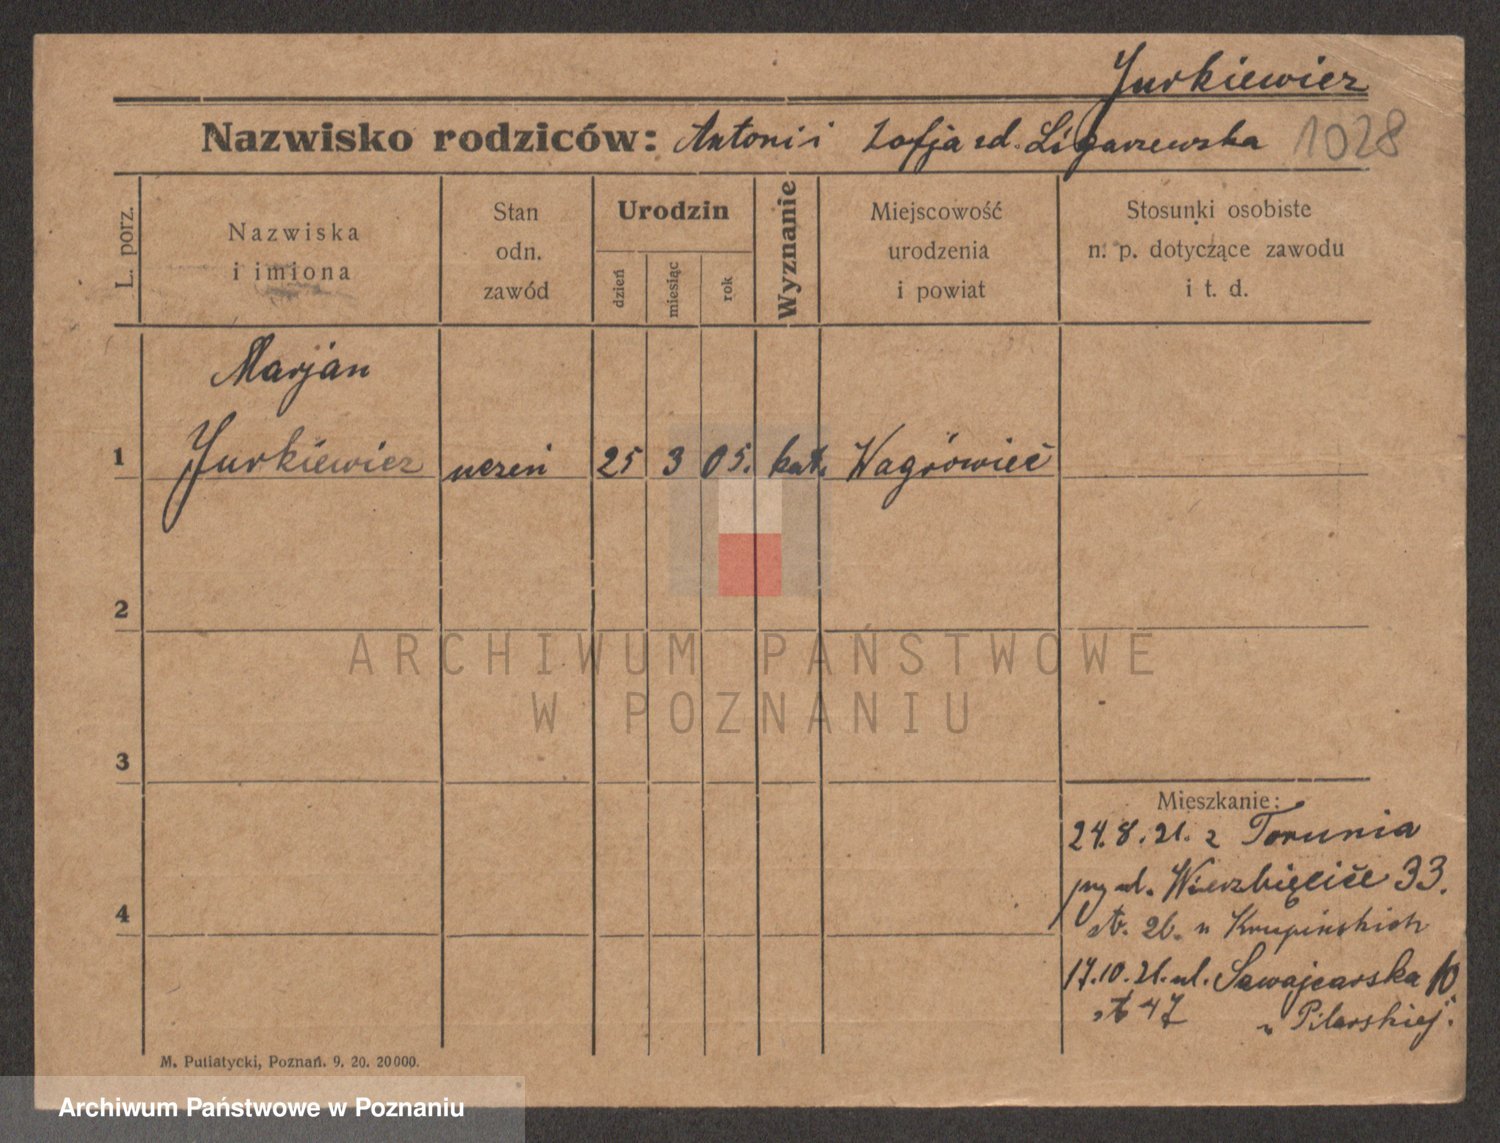 Jurkiewicz
Nazwisko rodziców: Antoni i Zofja zd. Ligarzewska 1028
L. porz.
Nazwiska
i imiona
Stan
odn.
zawód
Urodzin
dzień
miesiąc
rok
Wyznanie
Miejscowość
urodzenia
i powiat
Stosunki osobiste
n. p. dotyczące zawodu
i t. d.
Marjan
1 Jurkiewicz uczeń 25 3 05. kat. Wągrówiec
2
ARCHIWUM PAŃSTWOWE
W POZNANIU
3
Mieszkanie:
24.8.21. z Torunia
przy ul. Wierzbięcice 33.
st. 2b. u Krupińskich
17.10.21. ul. Szwajcarska 10
st 47 u Pilarskiej.
4
M. Putiatycki, Poznań. 9. 20. 20000.
Archiwum Państwowe w Poznaniu